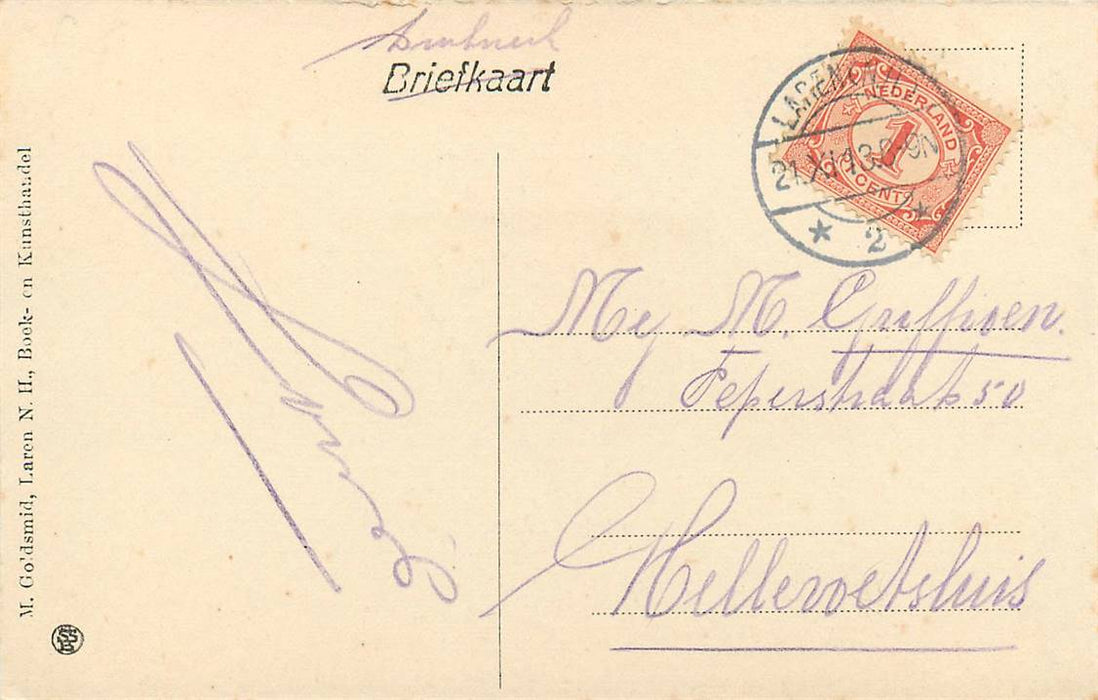 Briefkaart
LAREN
21.XI.13.8-9N
2
NEDERLAND
1
CENT
Mej M. Griffioen.
Peperstraat 50
Hellevoetsluis
M. Goldsmid, Laren N. H., Boek- en Kunsthandel